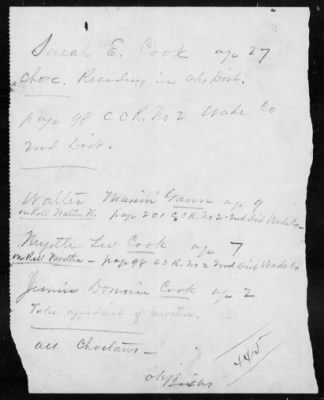 Sarah E. Cook age 27
Choc. Residing in Cho Dist.
page 98 C C R. No 2 Wade Co
2nd Dist.
Walter Marion Gann age 9
on Roll Walter page 201 C C R. No 2 2nd Dist Wade Co
Myrtle Lee Cook age 7
on Roll Mertha - page 98 C C R. No 2 2nd Dist Wade Co
Jimmie Donnie Cook age 2
Take affidavit of mother.
all Choctaws -
445